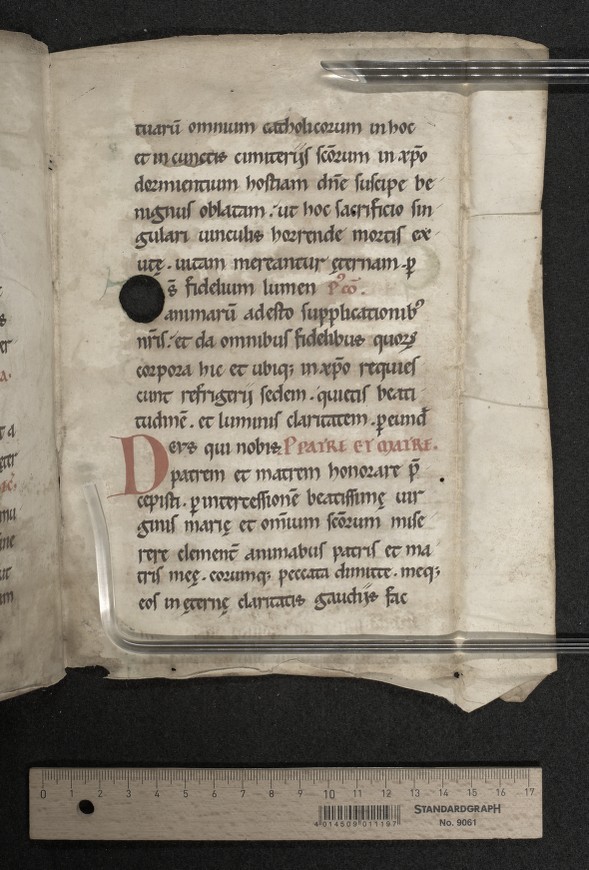 tuarū omnium catholicorum in hoc
et in cunctis cimiterijs sc̄orum in xp̄o
dormientium hostiam dn̄e suscipe be
nignus oblatam. ut hoc sacrificio sin
gulari uinculis horrende mortis ex
utę. uitam mereantur ęternam. ꝑ
s̄ fidelium lumen p'cō.
animarū adesto supplicationib'
nr̄is. et da omnibus fidelibus quoꝝ
corpora hic et ubiq; in xp̄o requies
cunt refrigerij sedem. quietis beati
tudinē. et luminis claritatem. ꝑ eund̄
Deus qui nobis. P PATRE ET MATRE.
patrem et matrem honorare p̄
cepisti. ꝑ intercessionē beatissimę uir
ginis marię et om̄ium sc̄orum mise
rere clement̄ animabus patris et ma
tris meę. eorumq; peccata dimitte. meq;
eos in ęternę claritatis gaudijs fac
0 1 2 3 4 5 6 7 8 9 10 11 12 13 14 15 16 17
STANDARDGRAPH
No. 9061
4 014509 011197